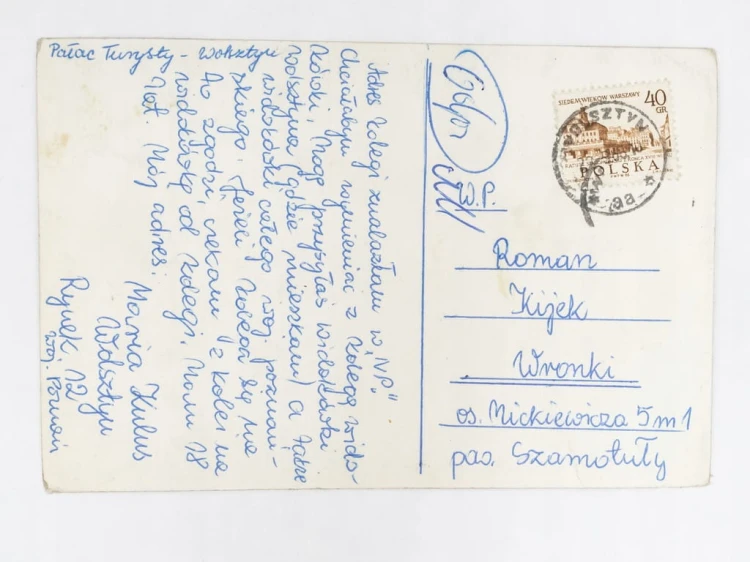 Pałac Turysty - Wolsztyn
Adres Kolegi znalazłam w „NP."
Chciałabym wymieniać z kolegą wido-
kówki. Mogę przysyłać widokówki
Wolsztyna (gdzie mieszkam) a także
widokówki całego woj. poznań-
skiego. Jeżeli Kolega się na
to zgodzi, czekam z kolei na
widokówkę od kolegi. Mam 18
lat. Mój adres:
Maria Kulus
Wolsztyn
Rynek 12
woj. Poznań
Odp
W.P.
Roman
Kijek
Wronki
os. Mickiewicza 5 m 1
pow. Szamotuły
SIEDEM WIEKÓW WARSZAWY
40
GR
POLSKA
WOLSZTYN